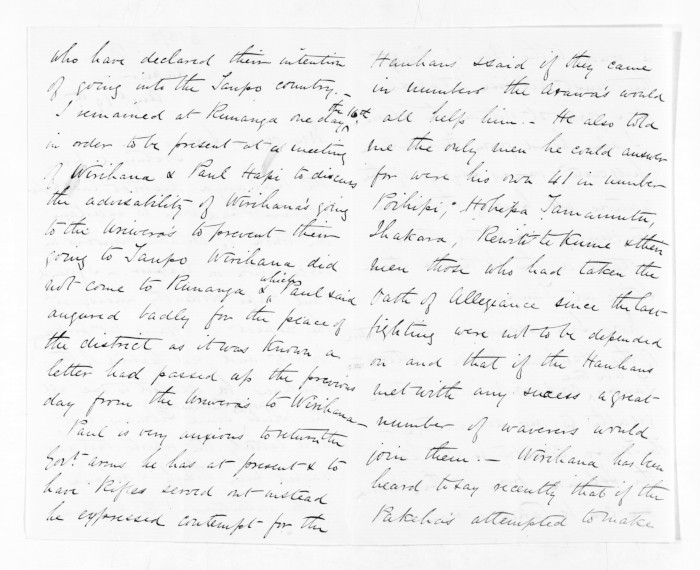 who have declared their intention
of going into the Taupo country. –
I remained at Runanga one day the 16th
in order to be present at a meeting
of Wirihana & Paul Hapi to discuss
the advisability of Wirihana's going
to the Urewera's to prevent their
going to Taupo Wirihana did
not come to Runanga & which Paul said
augured badly for the peace of
the district as it was known a
letter had passed up the previous
day from the Urewera's to Wirihana –
Paul is very anxious to return the
Govt. arms he has at present & to
have Rifles served out instead
he expressed contempt for the
Hauhaus & said if they came
in numbers the Arawa's would
all help him. – He also told
me the only men he could answer
for were his own 41 in number
Poihipi; Hohepa Tamamutu,
Ihakara, Rewiti te Kume & their
men those who had taken the
Oath of Allegiance since the last
fighting were not to be depended
on and that if the Hauhaus
met with any success a great
number of waverers would
join them. – Wirihana has been
heard to say recently that if the
Pakeha's attempted to make